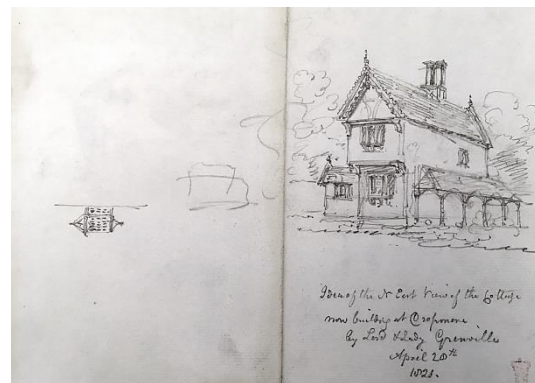 Idea of the N East View of the Cottage
now building at Dropmore
by Lord & Lady Grenville
April 20th
1821.